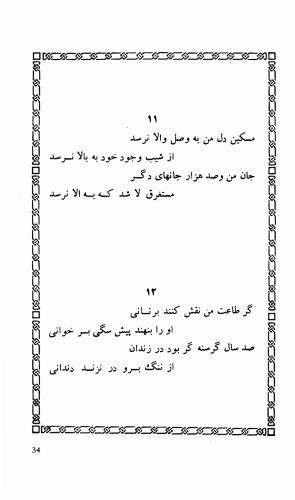 ۱۱
مسکین دل من به وصل والا نرسد
از شیب وجود خود به بالا نـرسد
جان من وصد هزار جانهای دگـر
مستغرق لا شد کـه بـه الا نرسد
۱۲
گر طاعت من نقش کنند برنـانی
او را بنهند پیش سگی بـر خوانی
صد سال گرسنه گر بود در زندان
از ننگ بـرو در نزند دندانی
34